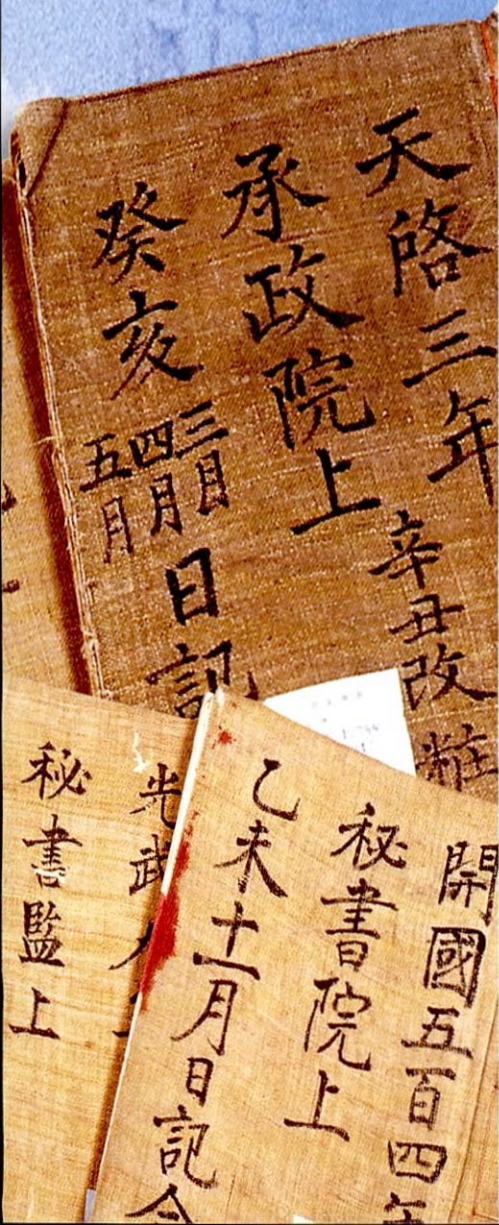 天啓三年 辛丑改粧
承政院上
癸亥 三月 四月 五月 日記
開國五百四年
秘書院上
乙未十一月日記
光武
秘書監上